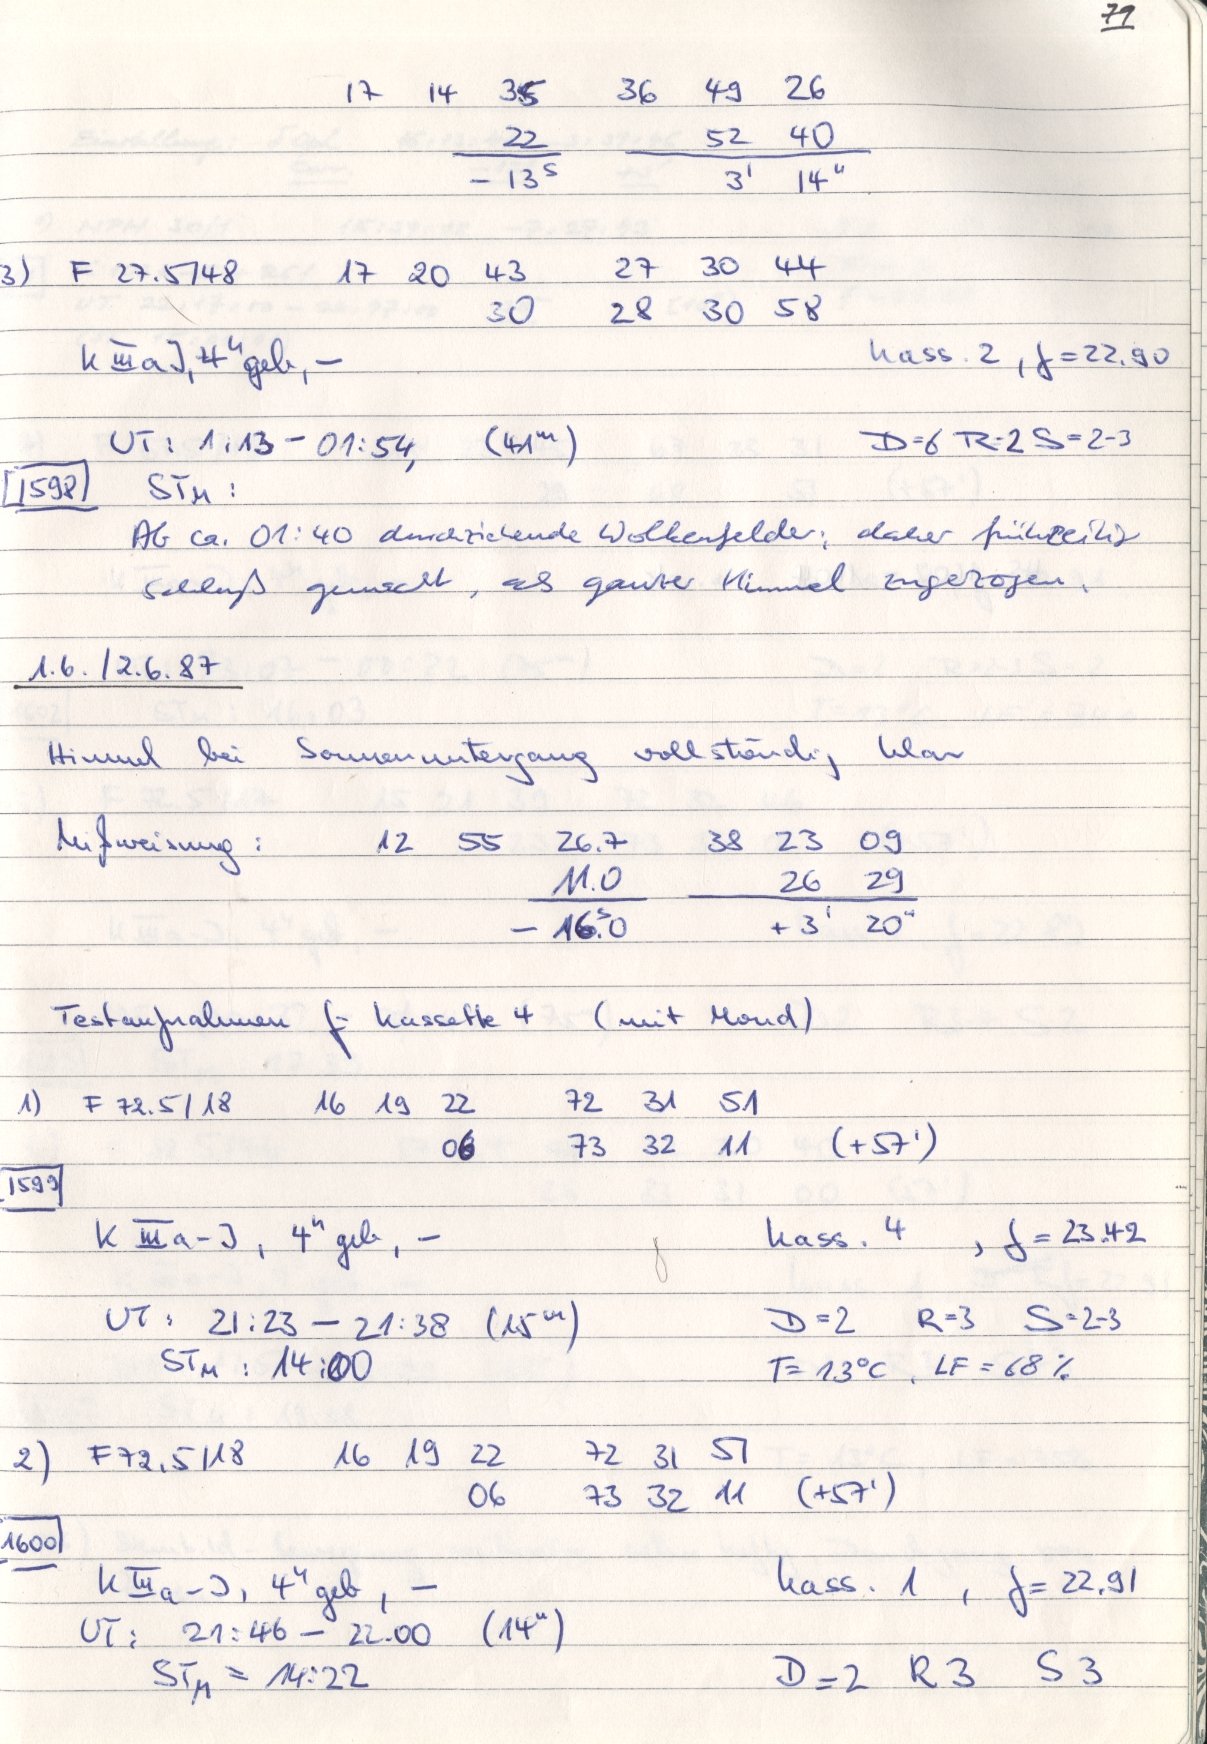 79
17 14 35 36 49 26
22 52 40
- 13ˢ 3' 14"
3) F 27.5/48 17 20 43 27 30 44
30 28 30 58
K III a J, 4ʰ geb, - Kass. 2, f = 22.90
UT: 1:13 - 01:54, (41ᵐ) D=6 R=2 S=2-3
1598 STM:
Ab ca. 01:40 durchziehende Wolkenfelder; daher frühzeitig
Schluß gemacht, als ganzer Himmel zugezogen.
1.6./2.6.87
Himmel bei Sonnenuntergang vollständig klar
Mißweisung: 12 55 26.7 38 23 09
11.0 26 29
- 16ˢ.0 + 3' 20"
Testaufnahmen f. Kassette 4 (mit Mond)
1) F 72.5/18 16 19 22 72 31 51
06 73 32 11 (+57')
1599
K III a - J, 4ʰ geb, - Kass. 4, f = 23.42
UT: 21:23 - 21:38 (15ᵐ) D=2 R=3 S=2-3
STM: 14:00 T=13°C, LF=68%
2) F 72.5/18 16 19 22 72 31 51
06 73 32 11 (+57')
1600
K III a - J, 4ʰ geb, - Kass. 1, f = 22.91
UT: 21:46 - 22.00 (14ᵐ)
STM = 14:22 D=2 R 3 S 3